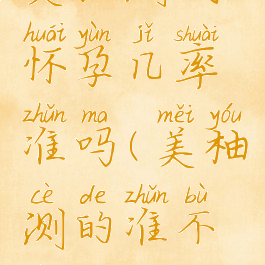 huái yùn jǐ shuài
怀孕几率
zhǔn ma měi yóu
准吗(美柚
cè de zhǔn bù
测的准不